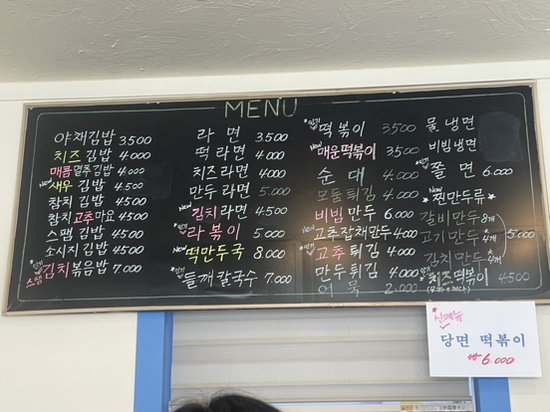 MENU
야채김밥 3500
치즈김밥 4.000
매콤멸추김밥 4.000
New 새우 김밥 4.500
참치 김밥 4.000
참치고추마요 4.500
스팸 김밥 4.500
소시지 김밥 4.500
스팸 김치볶음밥 7.000
라 면 3.500
떡 라면 4.000
치즈라면 4.000
만두라면 5.000
New 김치라면 4.500
인기 라 볶 이 5.000
New 떡만두국 8.000
인기 들깨칼국수 7.000
인기 떡 볶이 3500
New 매운떡볶이 3.500
순 대 4.000
모둠튀김 4.000
비빔만두 6.000
New 고추잡채만두 4.000
인기 고추튀김 4.000
만두튀김 4.000
어 묵 2.000
물냉면
비빔냉면
인기 쫄 면 6.000
New 찐만두류
갈비만두 8개
고기만두 4개 5.000
김치만두 4개
인기 치즈떡볶이 4.500
신메뉴
당면 떡볶이
6.000